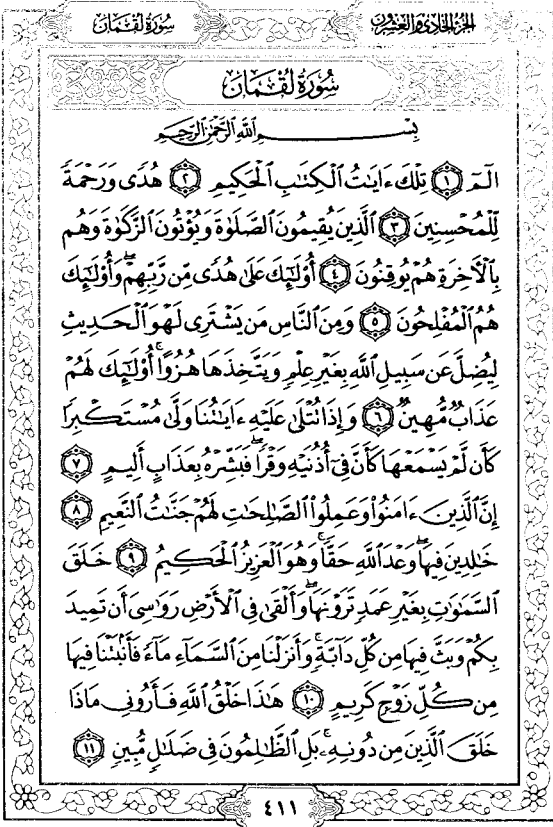 سُورَةُ لُقۡمَانَ
الجُزۡءُ الحَادِي وَالعِشۡرُونَ
سُورَةُ لُقۡمَانَ
بِسۡمِ ٱللَّهِ ٱلرَّحۡمَٰنِ ٱلرَّحِيمِ
الٓمٓ ١ تِلۡكَ ءَايَٰتُ ٱلۡكِتَٰبِ ٱلۡحَكِيمِ ٢ هُدٗى وَرَحۡمَةٗ
لِّلۡمُحۡسِنِينَ ٣ ٱلَّذِينَ يُقِيمُونَ ٱلصَّلَوٰةَ وَيُؤۡتُونَ ٱلزَّكَوٰةَ وَهُم
بِٱلۡأٓخِرَةِ هُمۡ يُوقِنُونَ ٤ أُوْلَٰٓئِكَ عَلَىٰ هُدٗى مِّن رَّبِّهِمۡۖ وَأُوْلَٰٓئِكَ
هُمُ ٱلۡمُفۡلِحُونَ ٥ وَمِنَ ٱلنَّاسِ مَن يَشۡتَرِي لَهۡوَ ٱلۡحَدِيثِ
لِيُضِلَّ عَن سَبِيلِ ٱللَّهِ بِغَيۡرِ عِلۡمٖ وَيَتَّخِذَهَا هُزُوًاۚ أُوْلَٰٓئِكَ لَهُمۡ
عَذَابٞ مُّهِينٞ ٦ وَإِذَا تُتۡلَىٰ عَلَيۡهِ ءَايَٰتُنَا وَلَّىٰ مُسۡتَكۡبِرٗا
كَأَن لَّمۡ يَسۡمَعۡهَا كَأَنَّ فِيٓ أُذُنَيۡهِ وَقۡرٗاۖ فَبَشِّرۡهُ بِعَذَابٍ أَلِيمٍ ٧
إِنَّ ٱلَّذِينَ ءَامَنُواْ وَعَمِلُواْ ٱلصَّٰلِحَٰتِ لَهُمۡ جَنَّٰتُ ٱلنَّعِيمِ ٨
خَٰلِدِينَ فِيهَاۖ وَعۡدَ ٱللَّهِ حَقّٗاۚ وَهُوَ ٱلۡعَزِيزُ ٱلۡحَكِيمُ ٩ خَلَقَ
ٱلسَّمَٰوَٰتِ بِغَيۡرِ عَمَدٖ تَرَوۡنَهَاۖ وَأَلۡقَىٰ فِي ٱلۡأَرۡضِ رَوَٰسِيَ أَن تَمِيدَ
بِكُمۡ وَبَثَّ فِيهَا مِن كُلِّ دَآبَّةٖۚ وَأَنزَلۡنَا مِنَ ٱلسَّمَآءِ مَآءٗ فَأَنۢبَتۡنَا فِيهَا
مِن كُلِّ زَوۡجٖ كَرِيمٍ ١٠ هَٰذَا خَلۡقُ ٱللَّهِ فَأَرُونِي مَاذَا
خَلَقَ ٱلَّذِينَ مِن دُونِهِۦۚ بَلِ ٱلظَّٰلِمُونَ فِي ضَلَٰلٖ مُّبِينٖ ١١
٤١١